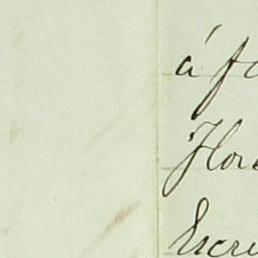 á fa
Hor
Escri